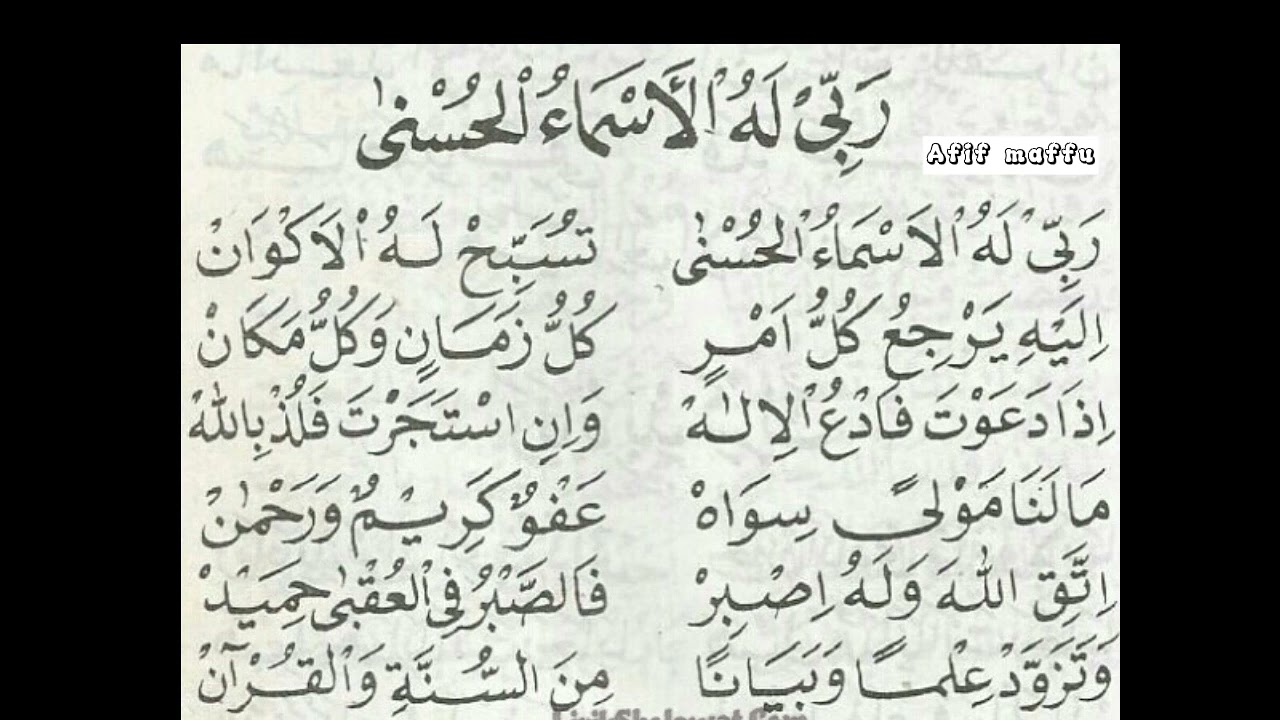 رَبِّيْ لَهُ الْأَسْمَاءُ الْحُسْنىٰ
Afif maffu
رَبِّيْ لَهُ الْاَسْمَاءُ الْحُسْنىٰ تُسَبِّحْ لَهُ الْاَكْوَانْ
اِلَيْهِ يَرْجِعُ كُلُّ اَمْرٍ كُلُّ زَمَانٍ وَكُلُّ مَكَانْ
اِذَا دَعَوْتَ فَادْعُ الْاِلٰهْ وَاِنِ اسْتَجَرْتَ فَلُذْ بِاللهْ
مَا لَنَا مَوْلىً سِوَاهْ عَفُوٌّ كَرِيْمٌ وَرَحْمٰنْ
اِتَّقِ اللهَ وَلَهُ اِصْبِرْ فَالصَّبْرُ فِى الْعُقْبىٰ حَمِيْدْ
وَتَزَوَّدْ عِلْمًا وَبَيَانًا مِنَ السُّنَّةِ وَالْقُرْآنْ